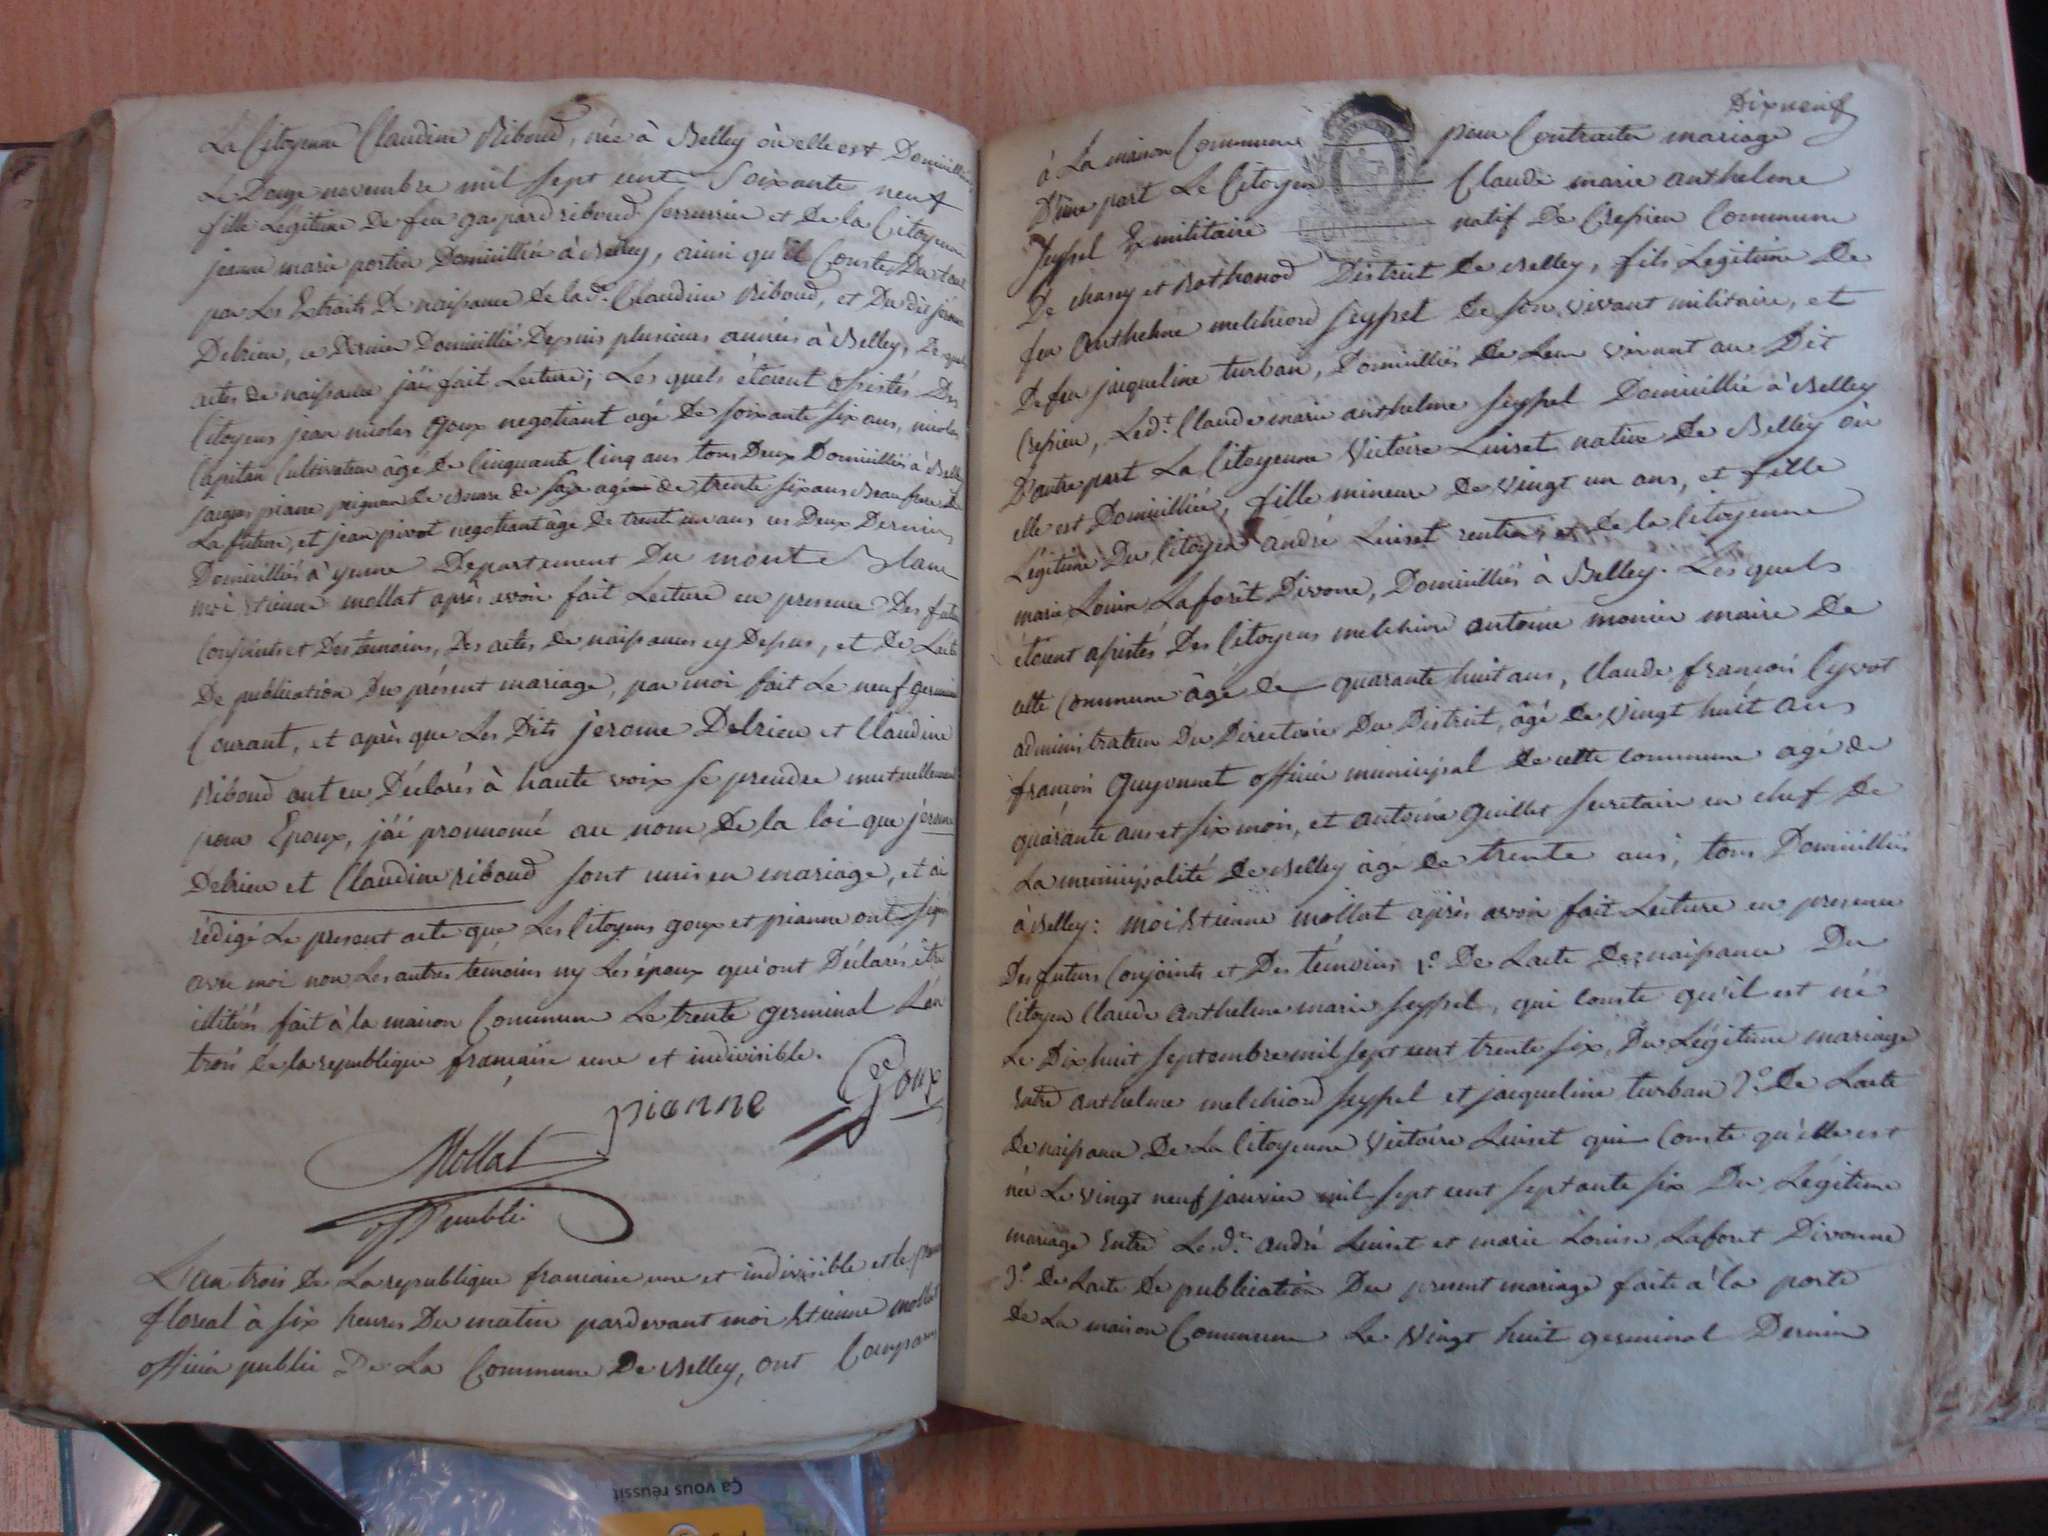 La Citoyenne Claudine Riboud, née à Belley où elle est Domicilliée
Le Douze novembre mil sept cent Soixante neuf
fille Legitime De feu gaspard riboud serrurier et De la Citoyenne
jeanne marie portier Domicilliée à Belley, ainsi qu'il Conste Du tout
par Les Extraits De naissance de lad. Claudine Riboud, et Du dit jérome
Delrieu, ce Dernier Domicillié Depuis plusieurs années à Belley, Des quels
actes de naissance j'ai fait Lecture; Les quels étoient assistés Des
Citoyens jean nicolas Goux negotiant agé De soixante six ans, nicolas
Capitan Cultivateur âgé de Cinquante Cinq ans tous Deux Domicilliés à Belley
jacques pianne peigneur de Bourre de soye agé de trente six ans Beau frere de
La future, et jean pivot negotiant âgé De trente un ans ces Deux Derniers
Domicilliés à yenne Departement Du mont Blanc
moi Etienne mollat après avoir fait Lecture en presence Des futurs
Conjoints et Des temoins, Des actes de naissances cy Dessus, et de L'acte
De publication Du présent mariage, par moi fait Le neuf germinal
Courant, et après que Les Dits jérome Delrieu et Claudine
Riboud ont eu Déclarés à haute voix se prendre mutuellement
pour Epoux, j'ai prononcé au nom De la loi que jérome
Delrieu et Claudine riboud sont unis en mariage, et ai
rédigé Le present acte que Les Citoyens goux et pianne ont signé
avec moi non Les autres temoins ny Les époux qui ont Déclarés être
illitérés fait à la maison Commune Le trente germinal L'an
trois de la republique française une et indivisible.
pianne Goux
Mollat
off. publi
L'an trois de La republique francaise une et indivisible et le
floreal à six heures Du matin pardevant moi Etienne mollat
officier public De La Commune De Belley, ont Comparu
Dixneuf
à La maison Commune pour Contracter mariage
D'une part Le Citoyen Claude marie anthelme
Seyssel Exmilitaire natif De Cressieu Commune
De chasey et Rothonod District De Belley, fils Legitime De
feu Anthelme melchiord seyssel De son vivant militaire, et
De feu jacqueline turban, Domicilliés De Leur vivant au Dit
Cressieu, Led.t Claude marie anthelme seyssel Domicillié à Belley
D'autre part La Citoyenne Victoire Luiset native De Belley où
elle est Domicilliée, fille mineure De vingt un ans, et fille
Légitime Du Citoyen andré Luiset rentier et De la Citoyenne
marie Louise Laforêt Divonne, Domicilliés à Belley. Les quels
étoient assistés Des Citoyens melchior antoine monier maire De
cette Commune âgé de quarante huit ans, Claude françois Cyvot
administrateur Du Directoire Du District, âgé De vingt huit ans
françois Guyonnet officier municipal de cette commune agé de
quarante ans et six mois, et antoine Guillot secretaire en chef De
La municipalité De Belley âgé De trente ans, tous Domicilliés
à Belley: moi Etienne mollat après avoir fait Lecture en presence
Des futurs Conjoints et Des témoins 1.° De L'acte De naissance Du
Citoyen Claude Anthelme marie seyssel, qui Conste qu'il est né
Le Dixhuit septembre mil sept cent trente six, Du Légitime mariage
Entre anthelme melchiord seyssel et jacqueline turban 2.° De L'acte
De naissance De La Citoyenne Victoire Luiset qui Conste qu'elle est
née Le vingt neuf janvier mil sept cent septante six Du Légitime
mariage Entre Led.t andré Luiset et marie Louise Lafont Divonne
3.° De L'acte De publication Du present mariage faite à la porte
De La maison Commune Le Vingt huit germinal Dernier
Ça vous réussit